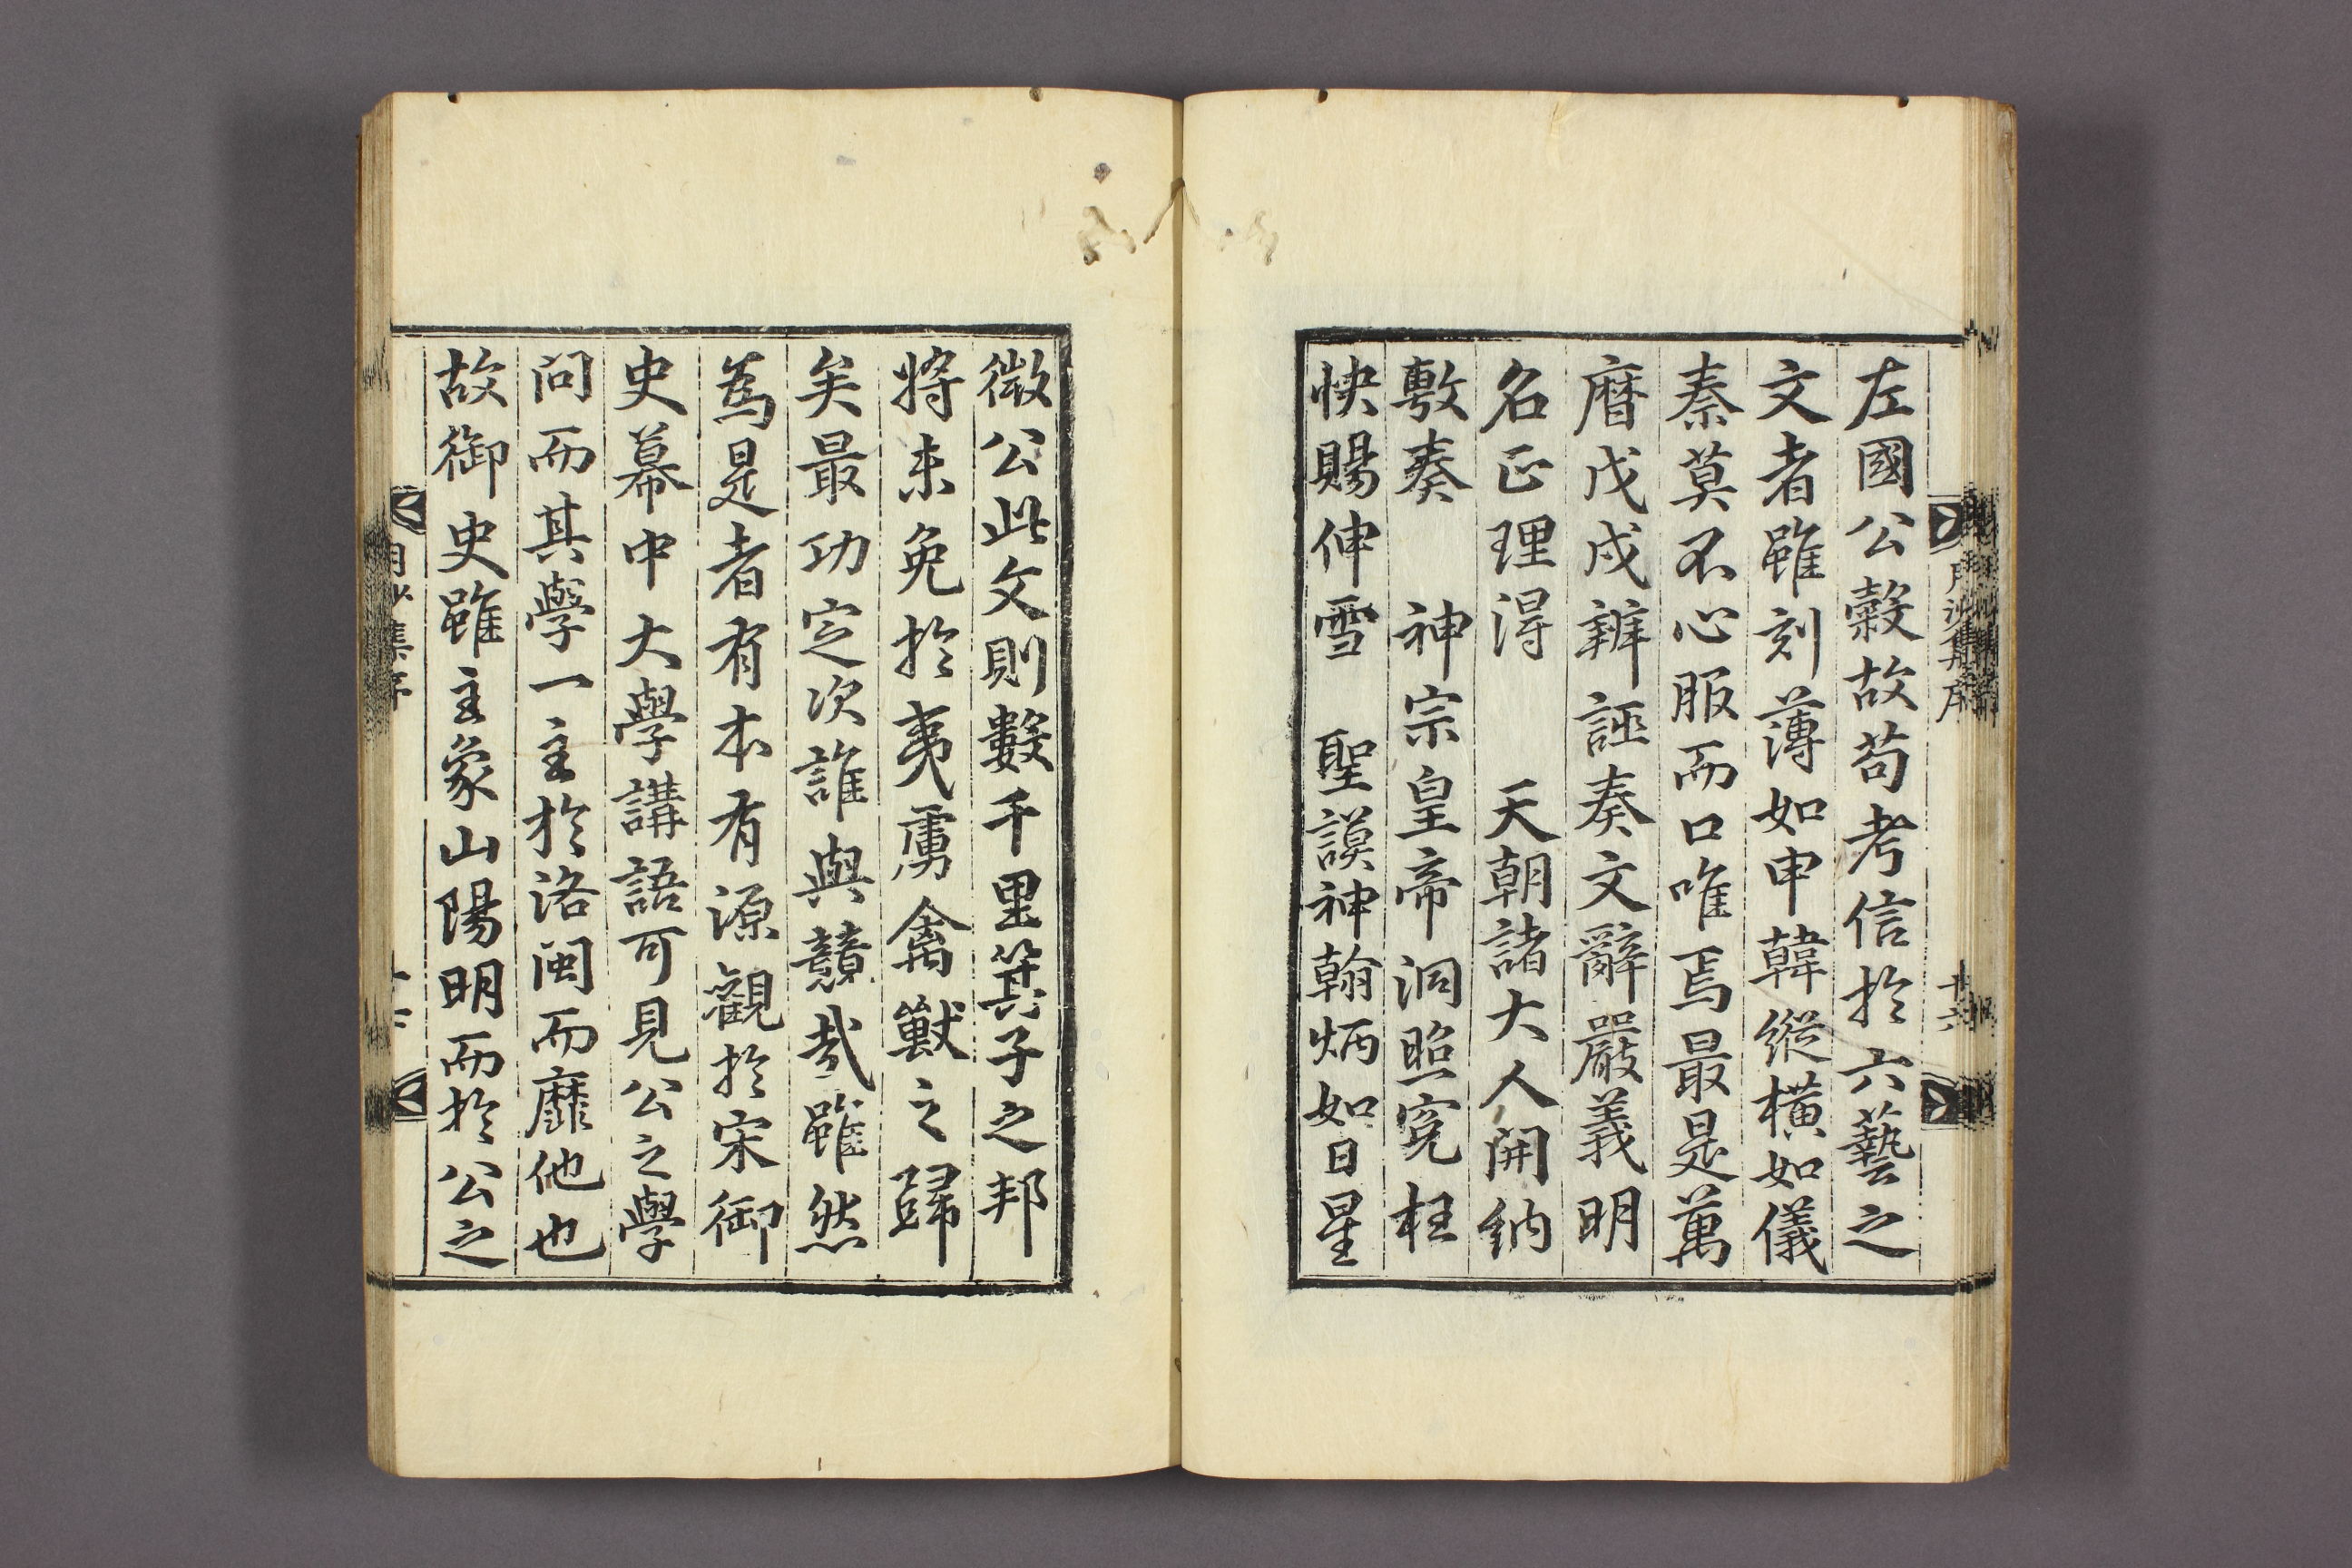 左國公穀故苟考信於六藝之
文者雖刻薄如申韓縱橫如儀
秦莫不心服而口唯焉最是萬
曆戊戌辨誣奏文辭嚴義明
名正理得 天朝諸大人開納
敷奏 神宗皇帝洞照寃枉
快賜伸雪 聖謨神翰炳如日星
微公此文則數千里箕子之邦
將未免於夷虜禽獸之歸
矣最功定次誰與讀哉雖然
爲是者有本有源觀於宋御
史幕中大學講語可見公之學
問而其學一主於洛閩而靡他也
故御史雖主象山陽明而於公之
月沙集序
十六